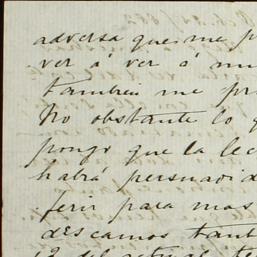 adversa que me p
ver á ver á mu
tambien me pr
No obstante lo q
pongo que la lec
habrá persuadid
ferir para mas
descamos tant
12 del actual te